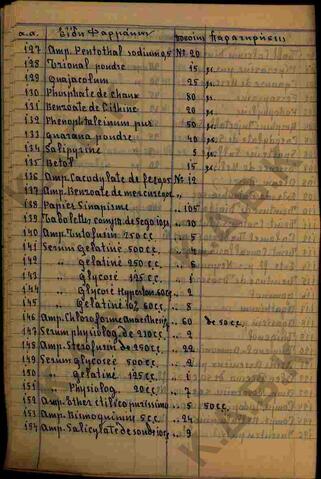 α.α. Είδη Φαρμάκων Ποσότης Παρατηρήσεις
127 Amp. Pentothal sodium 0,5 Nº 20
128 Trional poudre 15 γρ.
129 Guajacolum 25 γρ.
130 Phosphate de chaux 80 γρ.
131 Benzoate de Lithine 20 γρ.
132 Phenolphtaleinum pur 50 γρ.
133 Guarana poudre 40 γρ.
134 Salipyrine 5 γρ.
135 Betol 15 γρ.
136 Amp. Cacodylate de fer Nº 12
137 Amp. Benzoate de mercure
138 Papier Sinapisme 105
139 comprim. de 70
140 Amp. Tutofusin 250 cc. 5
141 Serum gelatiné 500 cc. 4
142 " gelatiné 250 cc. 5
143 " glycosé 125 cc. 1
144 " Glycosé Hyperton. 60 cc. 2
145 " Gelatiné 10% 60 cc. 8
146 Amp. Chloroforme Anaesthesie 60 de 50 cc.
147 Serum physiolog de 250 cc. 2
148 Amp. Sterofusin de 250 cc. 22
149 Serum glycoseé 500 cc. 2
150 " gelatiné 125 cc. 1
151 " Physiolog 20 cc. 7
152 Amp. Ether 5 50 cc.
153 Amp. Bismoquinim 5 cc. 24
154 Amp. Salicylate de soude 10 cc. 9